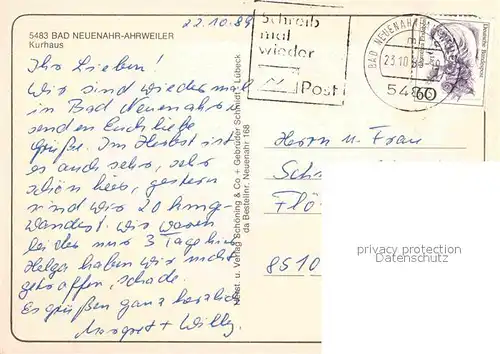 5483 BAD NEUENAHR-AHRWEILER
Kurhaus
22.10.89
Ihr Lieben!
Wir sind wieder mal
in Bad Neuenahr u.
senden Euch liebe
Grüße. Im Herbst ist
es auch sehr, sehr
schön hier, gestern
sind wir 20 km ge-
wandert. Wir waren
leider nur 3 Tage hier
Helga haben wir nicht
getroffen, schade.
Es grüßen ganz herzlich
Margret + Willy
Horst u. Verlag Schöning & Co + Gebrüder Schmidt, Lübeck
da Bestellnr. Neuenahr 168
Schreib
mal
wieder
Post
BAD NEUENAHR-AHRWEILER
23.10.89
548
Deutsche Bundespost
60
Herrn u. Frau
Sch
Flö
8510
privacy protection
Datenschutz